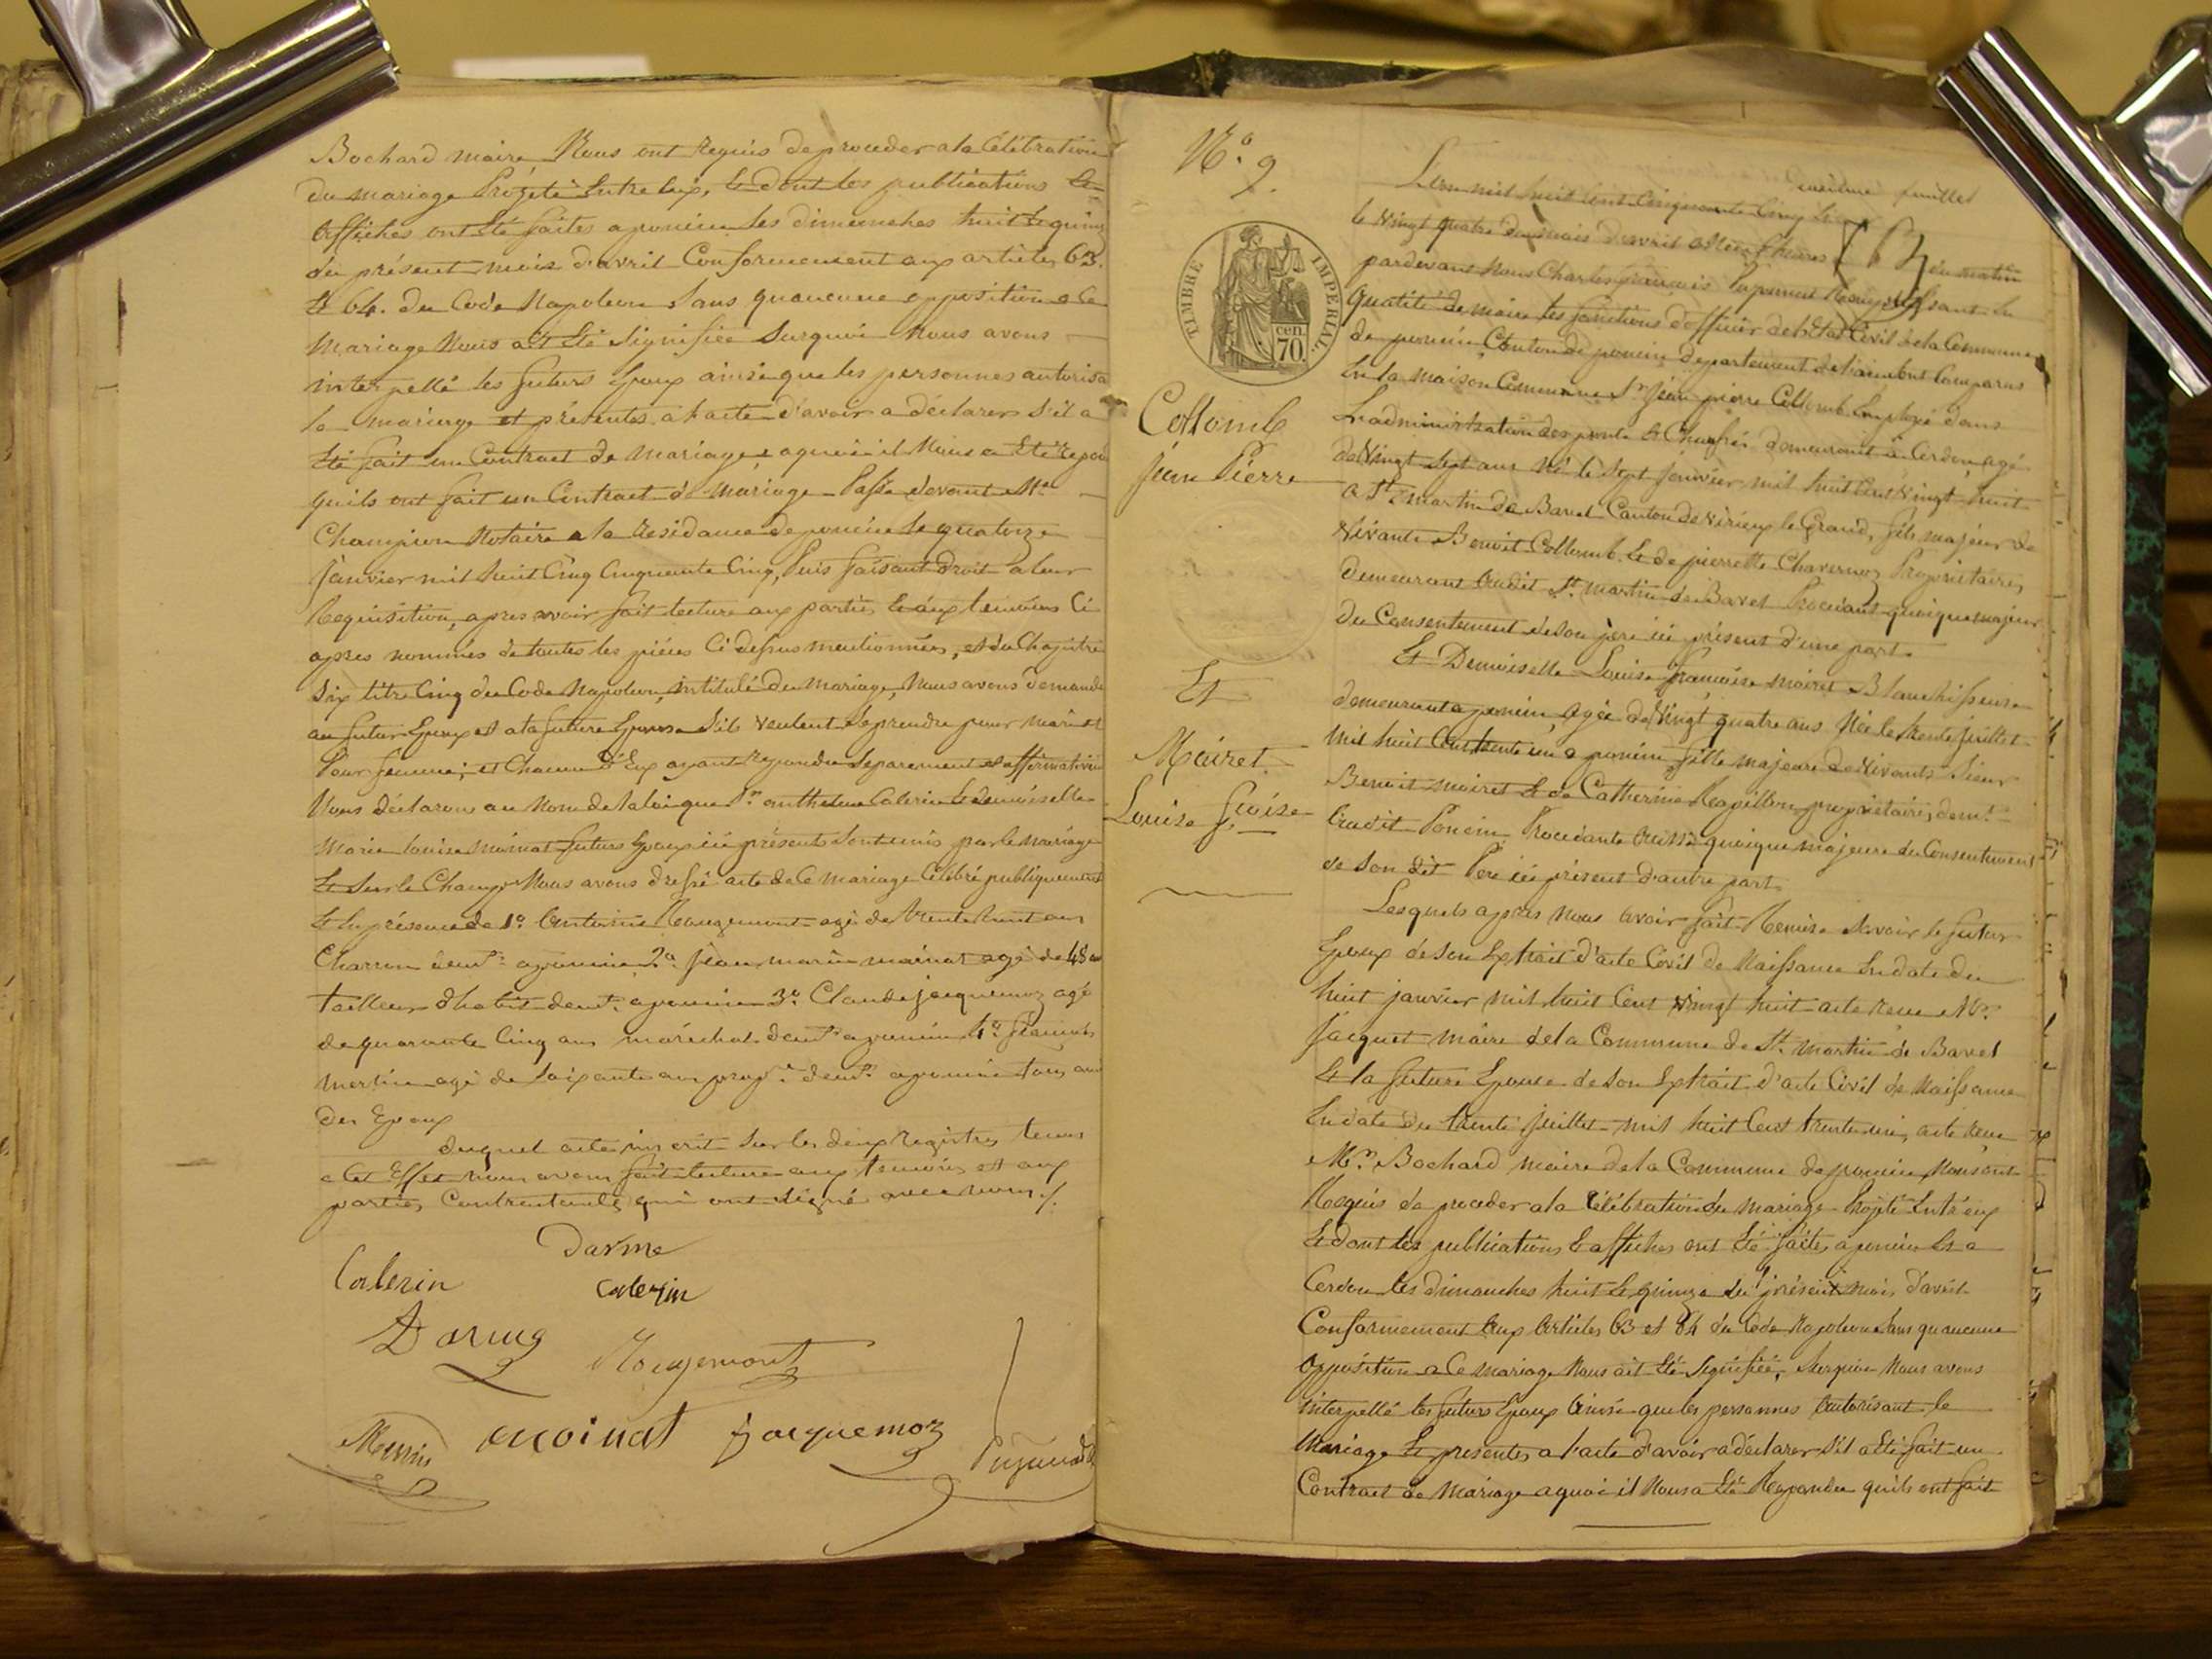 Bochard maire Nous ont requis de proceder a la Célébration
du mariage Projeté Entre Eux, Et dont les publications Et
affiches ont Eté faites a poncin les dimanches huit Et quinze
du présent mois d'avril Conformement aux articles 63.
Et 64. du Code Napoleon Sans qu'aucune opposition a Ce
Mariage Nous ait Eté Signifiée Surquoi Nous avons
interpellé les futurs Epoux ainsi que les personnes autorisa
le mariage et présentes a l'acte d'avoir a déclarer s'il a
Eté fait un Contract de Mariage, a quoi il Nous a Eté repon
quils ont fait un Contract de Mariage Passé devant Me
Champion Notaire a la Residance de poncin le quatorze
janvier mil huit Cinq Cinquante Cinq, Puis faisant Droit a leur
Requisition, apres avoir fait lecture aux parties Et aux temoins Ci
apres nommés de toutes les pièces Ci dessus mentionnées, et du Chapitre
Six titre Cinq du Code Napoleon, intitulé du Mariage, Nous avons demandé
au futur Epoux et a la future Epouse S'ils veulent se prendre pour mari et
Pour femme; et Chacun d'Eux ayant Repondu Separement et affirmativem
Nous déclarons au Nom de la loi que Sr anthelme Calerin Et demoiselle
Marie louise moinat futurs Epoux ici présents Sont unis par le mariage
Et Sur le Champ Nous avons dressé acte de Ce Mariage Célébré publiquement
Et En présence de 1o Antoine Rougemont agé de trente huit ans
Charron demt a poncin 2o jean marie moinat agé de 48 an
tailleur d'habit demt a poncin 3o Claude jacquemoz agé
de quarante Cinq ans maréchal demt a poncin 4o francois
mertin agé de Soixante ans propre demt a poncin tous am
des Epoux
duquel acte inscrit Sur les deux registres tenus
a Cet Effet nous avons fait lecture aux temoins et aux
parties Contractantes qui ont signé avec nous /.
Darme
Calerin Calerin
Darme
Rougemont
moinat jacquemoz
No 9.
TIMBRE IMPERIAL
cen. 70.
Collomb
Jean Pierre
Et
Moiret
Louise fçoise
feuillet
L'an mil huit Cent Cinquante Cinq Et
le Vingt quatre du mois d'avril a heures du matin
pardevant Nous Charles françois Exerssant En
Qualité de maire les fonctions d'officier de l'Etat Civil de la Commune
de poncin Canton de poncin département de l'ain Sont Comparus
En la maison Commune Sr jean pierre Collomb Employé dans
L'administration des ponts Et Chaussées demeurant a Cerdon, agé
de Vingt Sept ans Né le Sept janvier mil huit Cent Vingt huit
a St martin de Bavel Canton de Virieux le Grand, fils majeur de
Vivants Benoit Collomb Et de pierrette Chavernoz Proprietaires
demeurant Audit St martin de Bavel Procédant quoique majeur
du Consentement de Son pere ici présent d'une part
Et Demoiselle Louise françoise moiret Blanchisseuse
demeurant a poncin, agée de Vingt quatre ans Née le trente juillet
Mil huit Cent trente un a poncin fille majeure de Vivants Sieur
Benoit moiret Et de Catherine Rapillon proprietaires, demt
Audit Poncin Procédante Aussi quoique majeure du Consentement
de Son dit Pere ici présent d'autre part
Lesquels après Nous Avoir fait Remise Savoir le futur
Epoux de Son Extrait d'acte Civil de Naissance En date du
huit janvier mil huit Cent Vingt huit acte reçu Mr
Jacquet maire de la Commune de St martin de Bavel
Et la future Epouse de Son Extrait d'acte Civil de Naissance
En date du trente juillet mil huit Cent trente un, acte reçu
Mr Bochard maire de la Commune de poncin Nous ont
Requis de proceder a la Célébration du mariage Projeté Entr'eux
Et dont les publications Et affiches ont Eté faites a poncin Et a
Cerdon les dimanches huit Et quinze du présent mois d'avril
Conformement Aux Articles 63 et 64 du Code Napoleon Sans qu'aucune
Opposition a Ce mariage Nous ait Eté Signifiée, Surquoi Nous avons
interpellé les futurs Epoux Ainsi que les personnes Autorisant le
Mariage Et présentes a l'acte d'avoir a déclarer s'il a Eté fait un
Contract de Mariage a quoi il Nous a Eté Repondu quils ont fait